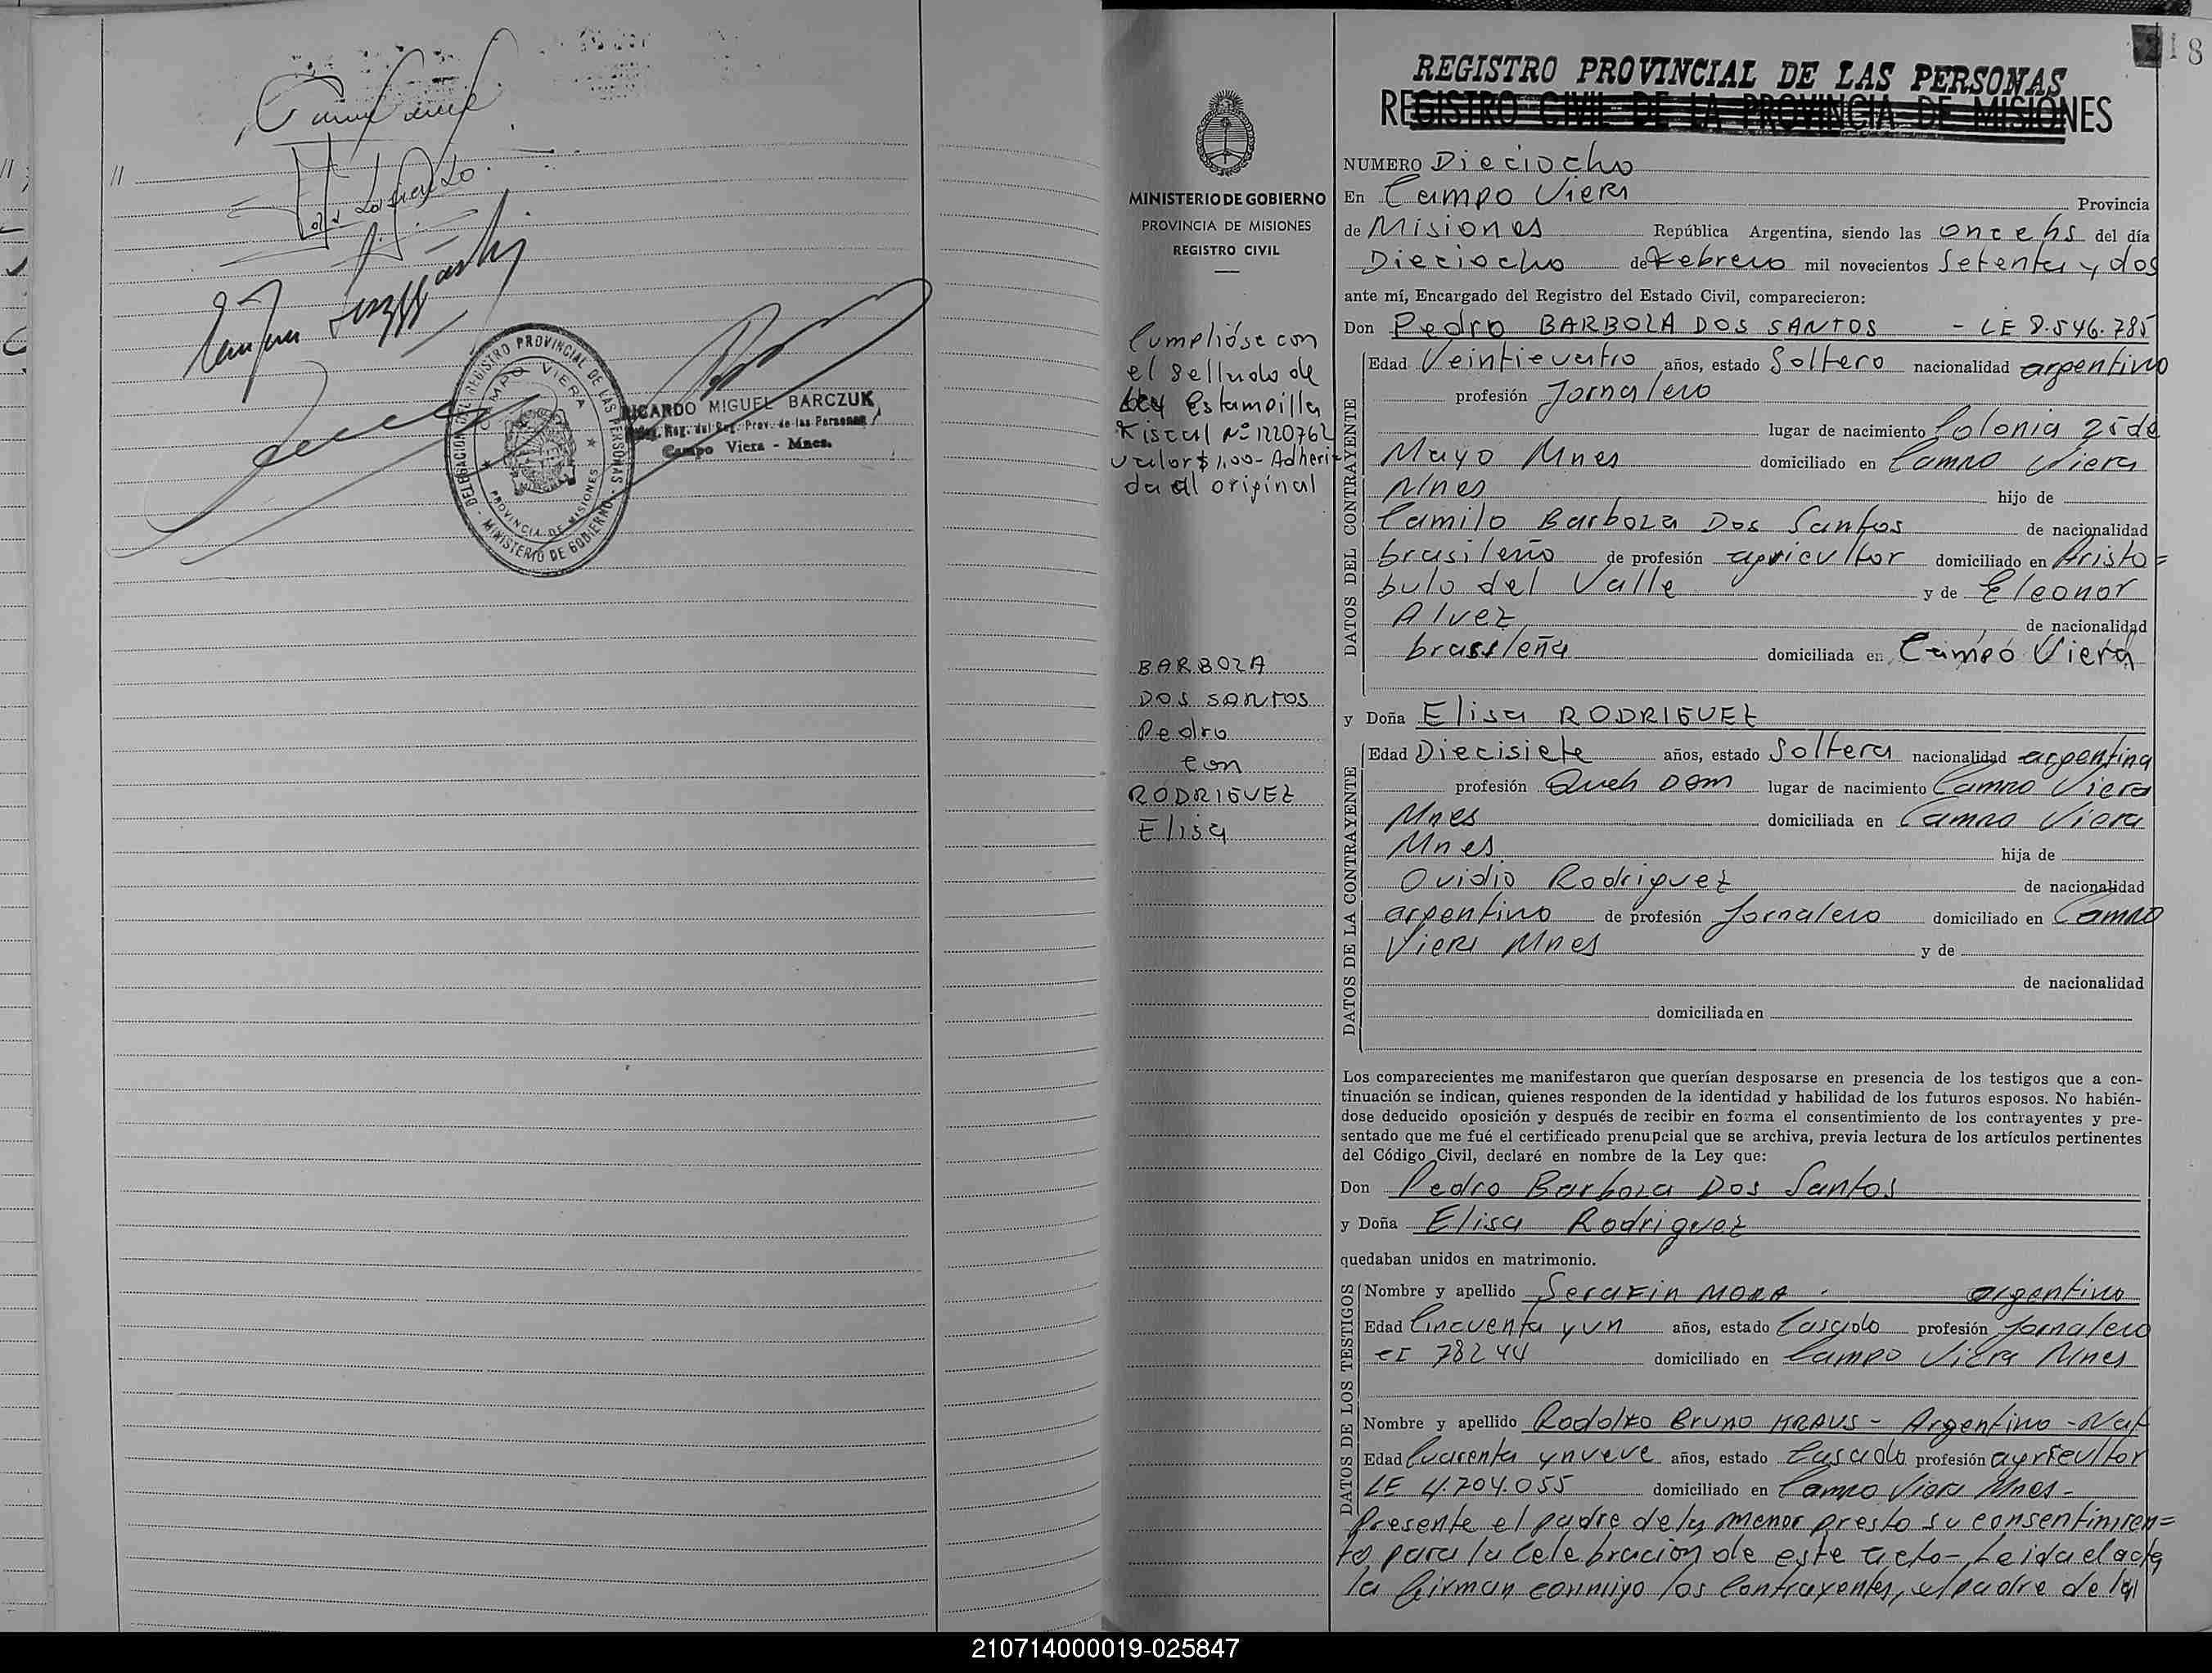 //
DELEGACION DEL REGISTRO PROVINCIAL DE LAS PERSONAS
CAMPO VIERA
PROVINCIA DE MISIONES
MINISTERIO DE GOBIERNO
RICARDO MIGUEL BARCZUK
Reg. del Reg. Prov. de las Personas
Campo Viera - Mnes.
18
REGISTRO PROVINCIAL DE LAS PERSONAS
REGISTRO CIVIL DE LA PROVINCIA DE MISIONES
MINISTERIO DE GOBIERNO
PROVINCIA DE MISIONES
REGISTRO CIVIL
Cumplióse con
el sellado de
Ley Estampilla
Fiscal Nº 1220762
valor $ 1,00 - Adheri-
da al original
BARBOZA
DOS SANTOS
Pedro
con
RODRIGUEZ
Elisa
NUMERO Dieciocho
En Campo Viera Provincia
de Misiones República Argentina, siendo las once hs del día
Dieciocho de Febrero mil novecientos setenta y dos
ante mí, Encargado del Registro del Estado Civil, comparecieron:
Don Pedro BARBOZA DOS SANTOS - LE 8.546.785
DATOS DEL CONTRAYENTE
Edad Veinticuatro años, estado Soltero nacionalidad argentino
profesión Jornalero
lugar de nacimiento Colonia 25 de
Mayo Mnes domiciliado en Campo Viera
Mnes hijo de
Camilo Barboza Dos Santos de nacionalidad
brasileño de profesión agricultor domiciliado en Aristo=
bulo del Valle y de Eleonor
Alvez de nacionalidad
brasileña domiciliada en Campo Viera
y Doña Elisa RODRIGUEZ
DATOS DE LA CONTRAYENTE
Edad Diecisiete años, estado Soltera nacionalidad argentina
profesión Queh Dom lugar de nacimiento Campo Viera
Mnes domiciliada en Campo Viera
Mnes hija de
Ovidio Rodriguez de nacionalidad
argentino de profesión Jornalero domiciliado en Campo
Viera Mnes y de
de nacionalidad
domiciliada en
Los comparecientes me manifestaron que querían desposarse en presencia de los testigos que a con-
tinuación se indican, quienes responden de la identidad y habilidad de los futuros esposos. No habién-
dose deducido oposición y después de recibir en forma el consentimiento de los contrayentes y pre-
sentado que me fué el certificado prenupcial que se archiva, previa lectura de los artículos pertinentes
del Código Civil, declaré en nombre de la Ley que:
Don Pedro Barboza Dos Santos
y Doña Elisa Rodriguez
quedaban unidos en matrimonio.
DATOS DE LOS TESTIGOS
Nombre y apellido Serafin MORA - argentino
Edad Cincuenta y un años, estado Casado profesión Jornalero
CI 78244 domiciliado en Campo Viera Mnes
Nombre y apellido Rodolfo Bruno KRAUS - Argentino - Nat
Edad Cuarenta y nueve años, estado Casado profesión agricultor
LE 4.704.055 domiciliado en Campo Viera Mnes -
Presente el padre de la menor presto su consentimien=
to para la celebracion de este acto - Leida el acta,
la firman conmigo los contrayentes, el padre de la
210714000019-025847